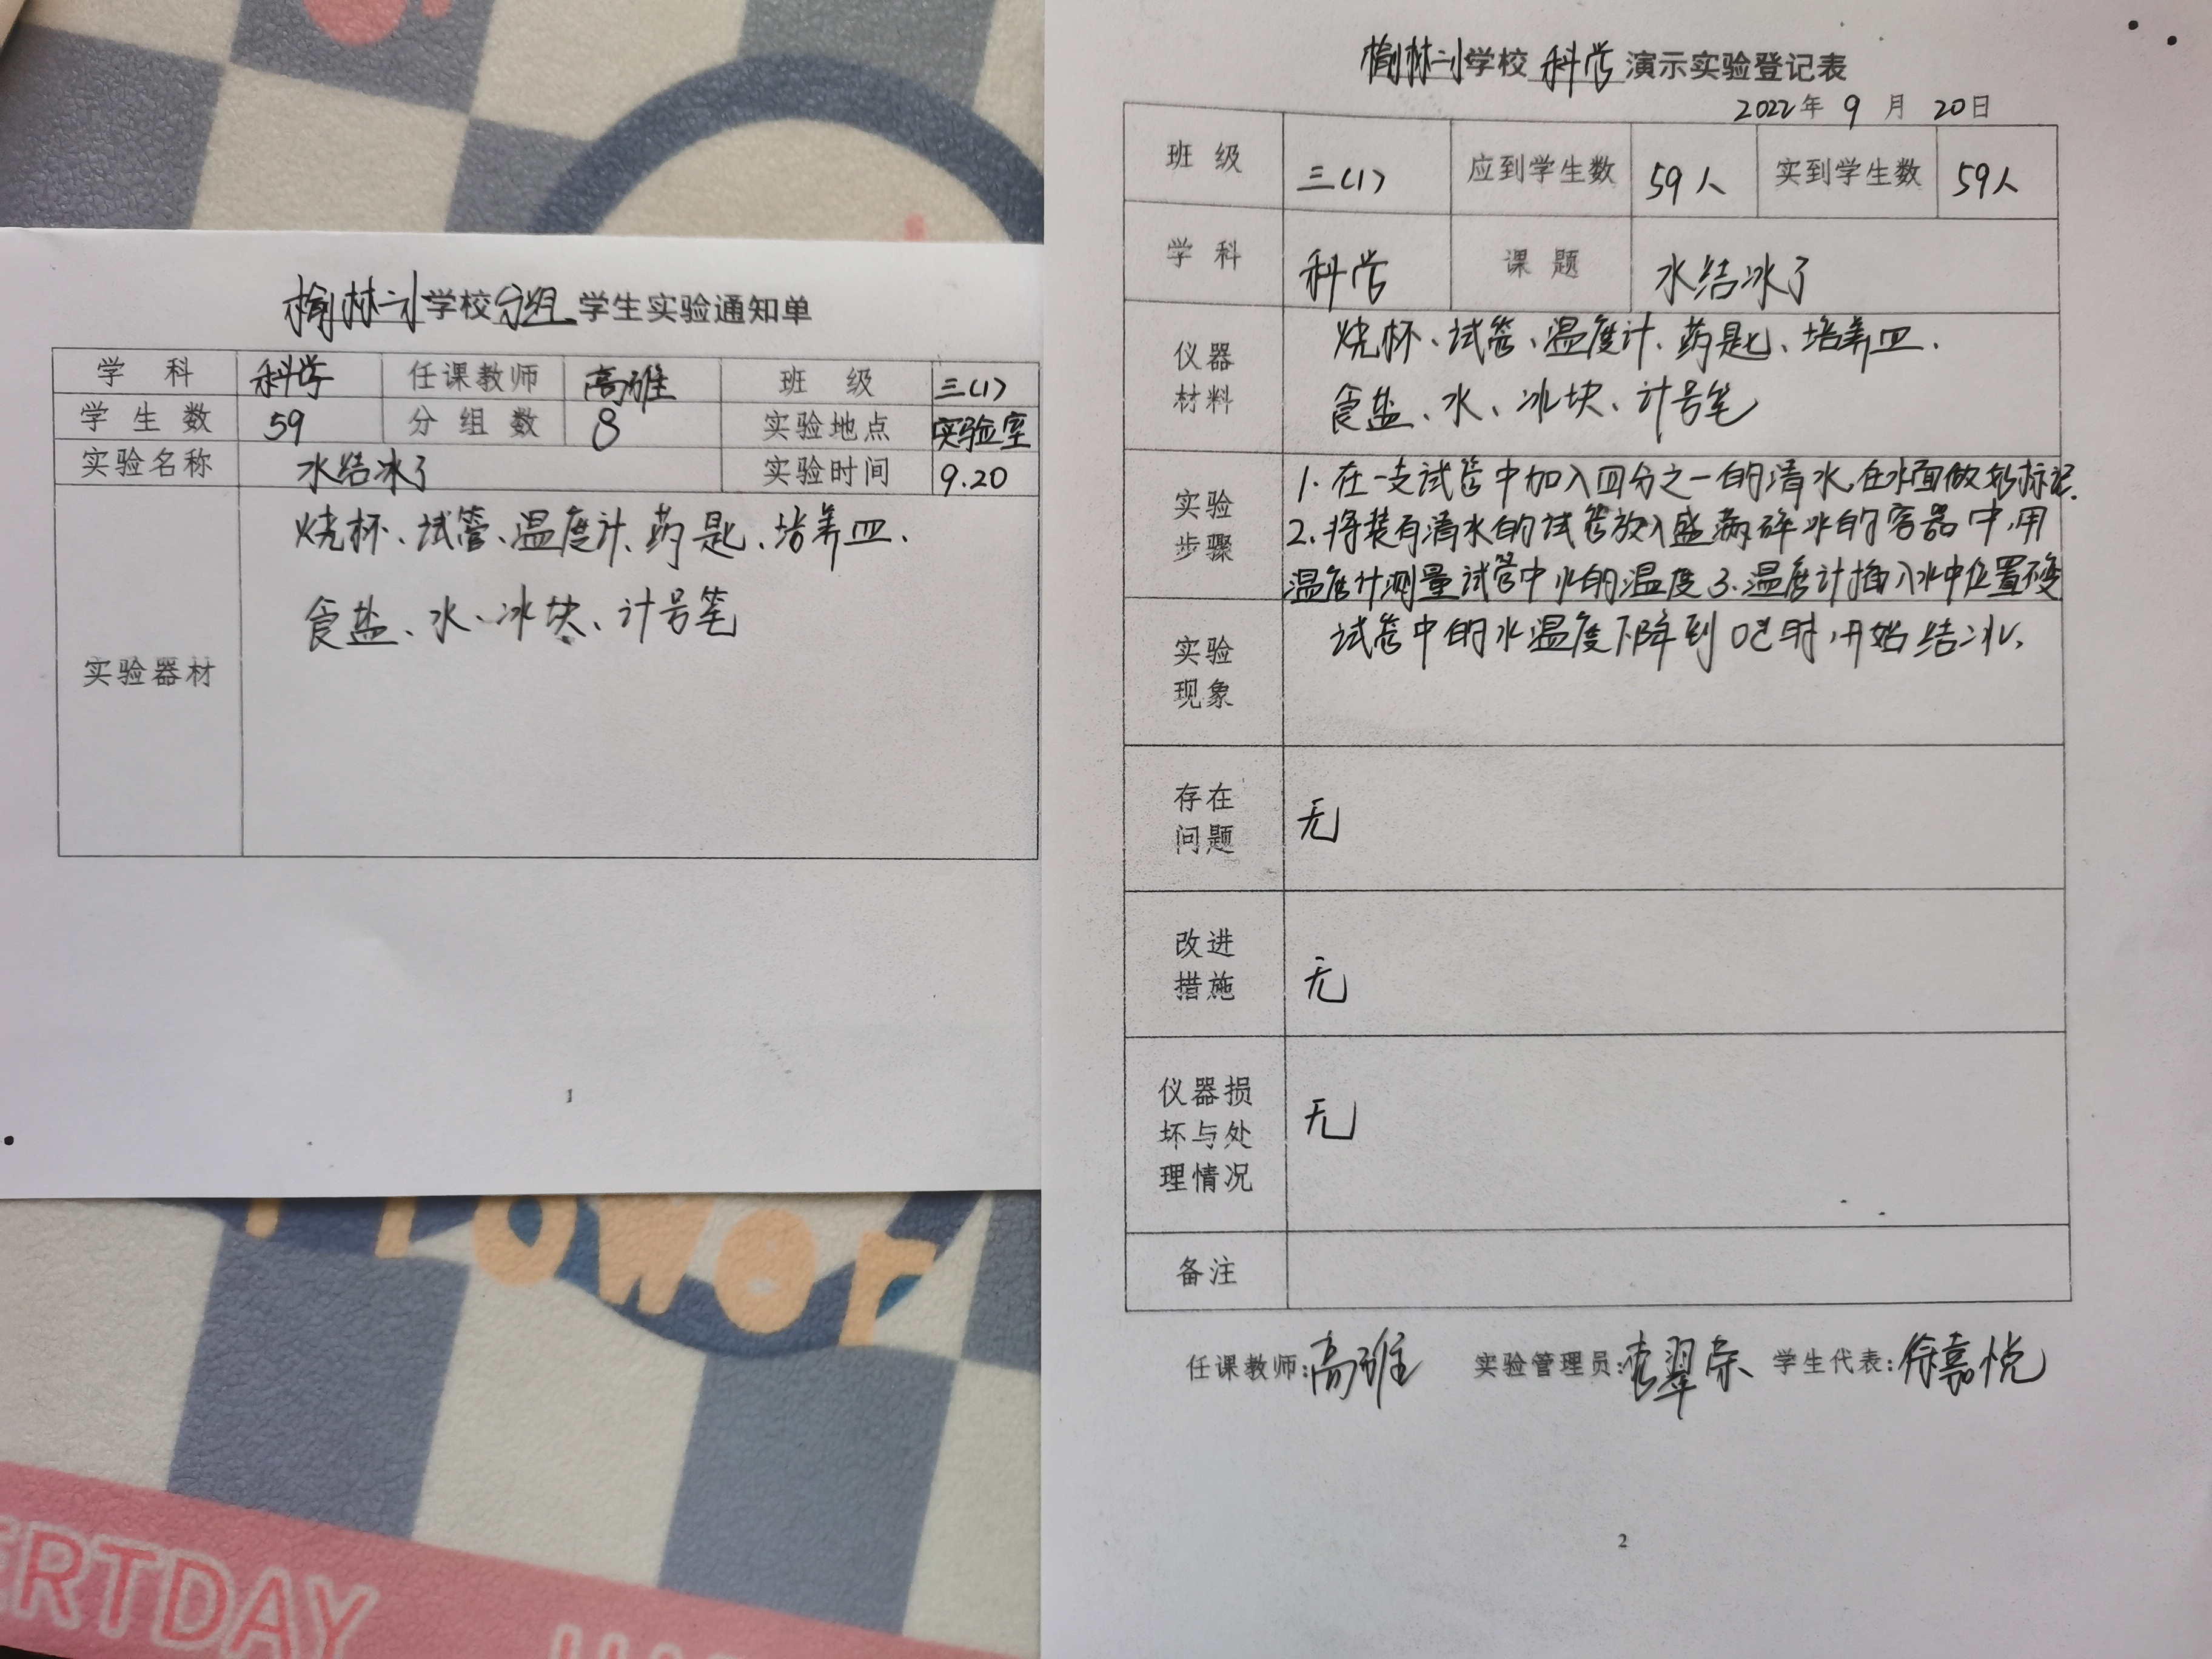 榆林二小学校分组学生实验通知单
学 科 科学 任课教师 高雅 班 级 三(1)
学生数 59 分组数 8 实验地点 实验室
实验名称 水结冰了 实验时间 9.20
实验器材
烧杯、试管、温度计、药匙、培养皿、
食盐、水、冰块、计号笔
1
榆林二小学校科学演示实验登记表
2022年 9 月 20日
班 级 三(1) 应到学生数 59人 实到学生数 59人
学 科 科学 课 题 水结冰了
仪器
材料
烧杯、试管、温度计、药匙、培养皿、
食盐、水、冰块、计号笔
实验
步骤
1. 在一支试管中加入四分之一的清水,在水面做好标记.
2. 将装有清水的试管放入盛满碎冰的容器中,用
温度计测量试管中水的温度 3. 温度计插入水中位置不变
实验
现象
试管中的水温度下降到0℃时,开始结冰、
存在
问题
无
改进
措施
无
仪器损
坏与处
理情况
无
备注
任课教师:高雅 实验管理员: 学生代表:徐嘉悦
2
Flower
ERTDAY